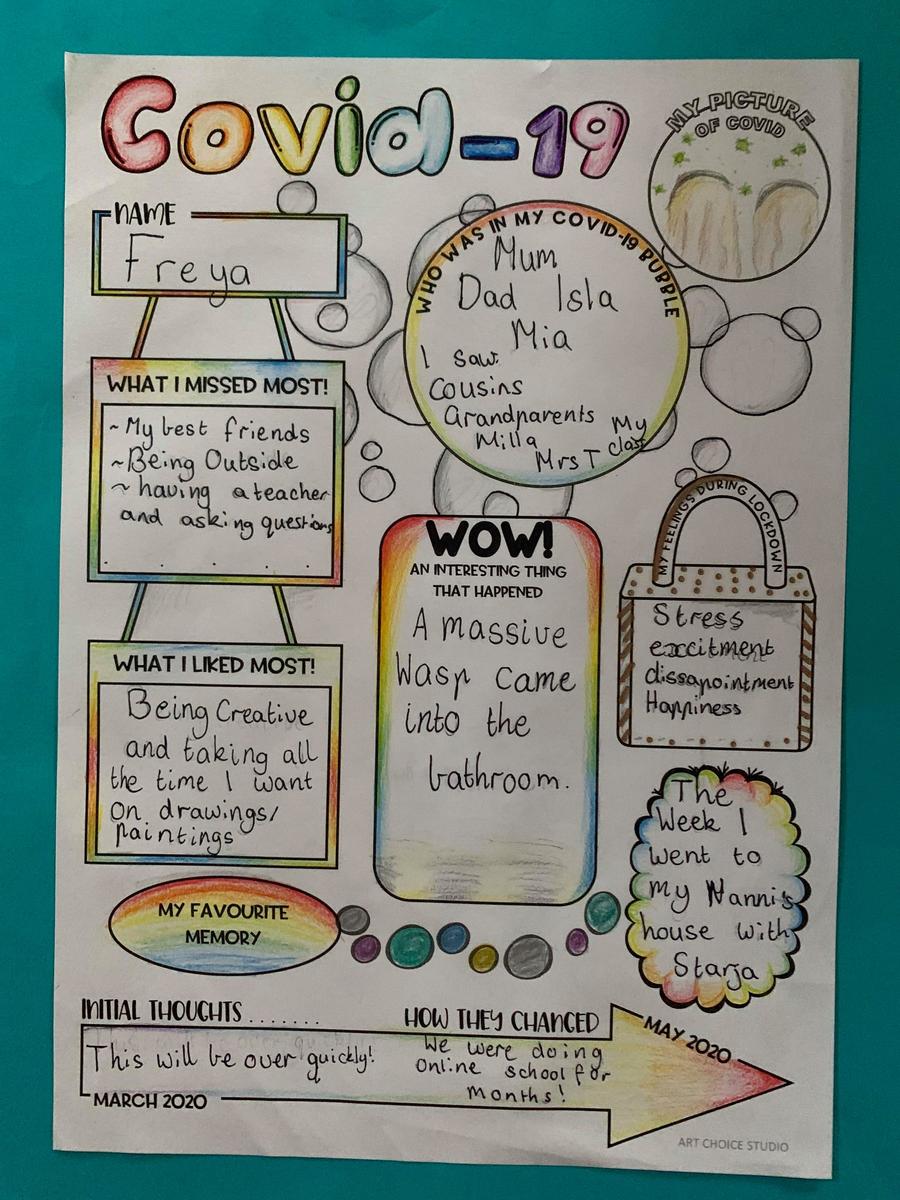 Covid-19
MY PICTURE
OF COVID
NAME
Freya
WHO WAS IN MY COVID-19 BUBBLE
Mum
Dad Isla
Mia
I saw:
Cousins
Grandparents
Milla
Mrs T
My
class
WHAT I MISSED MOST!
~My best friends
~Being Outside
~having a teacher
and asking questions
WHAT I LIKED MOST!
Being Creative
and taking all
the time I want
on drawings/
paintings
WOW!
AN INTERESTING THING
THAT HAPPENED
A massive
Wasp came
into the
bathroom.
MY FEELINGS DURING LOCKDOWN
Stress
exccitment
dissapointment
Happiness
MY FAVOURITE
MEMORY
The
Week I
went to
my Nanni's
house with
Starja
INITIAL THOUGHTS .......
This will be over quickly!
MARCH 2020
HOW THEY CHANGED
We were doing
online school for
months!
MAY 2020
ART CHOICE STUDIO